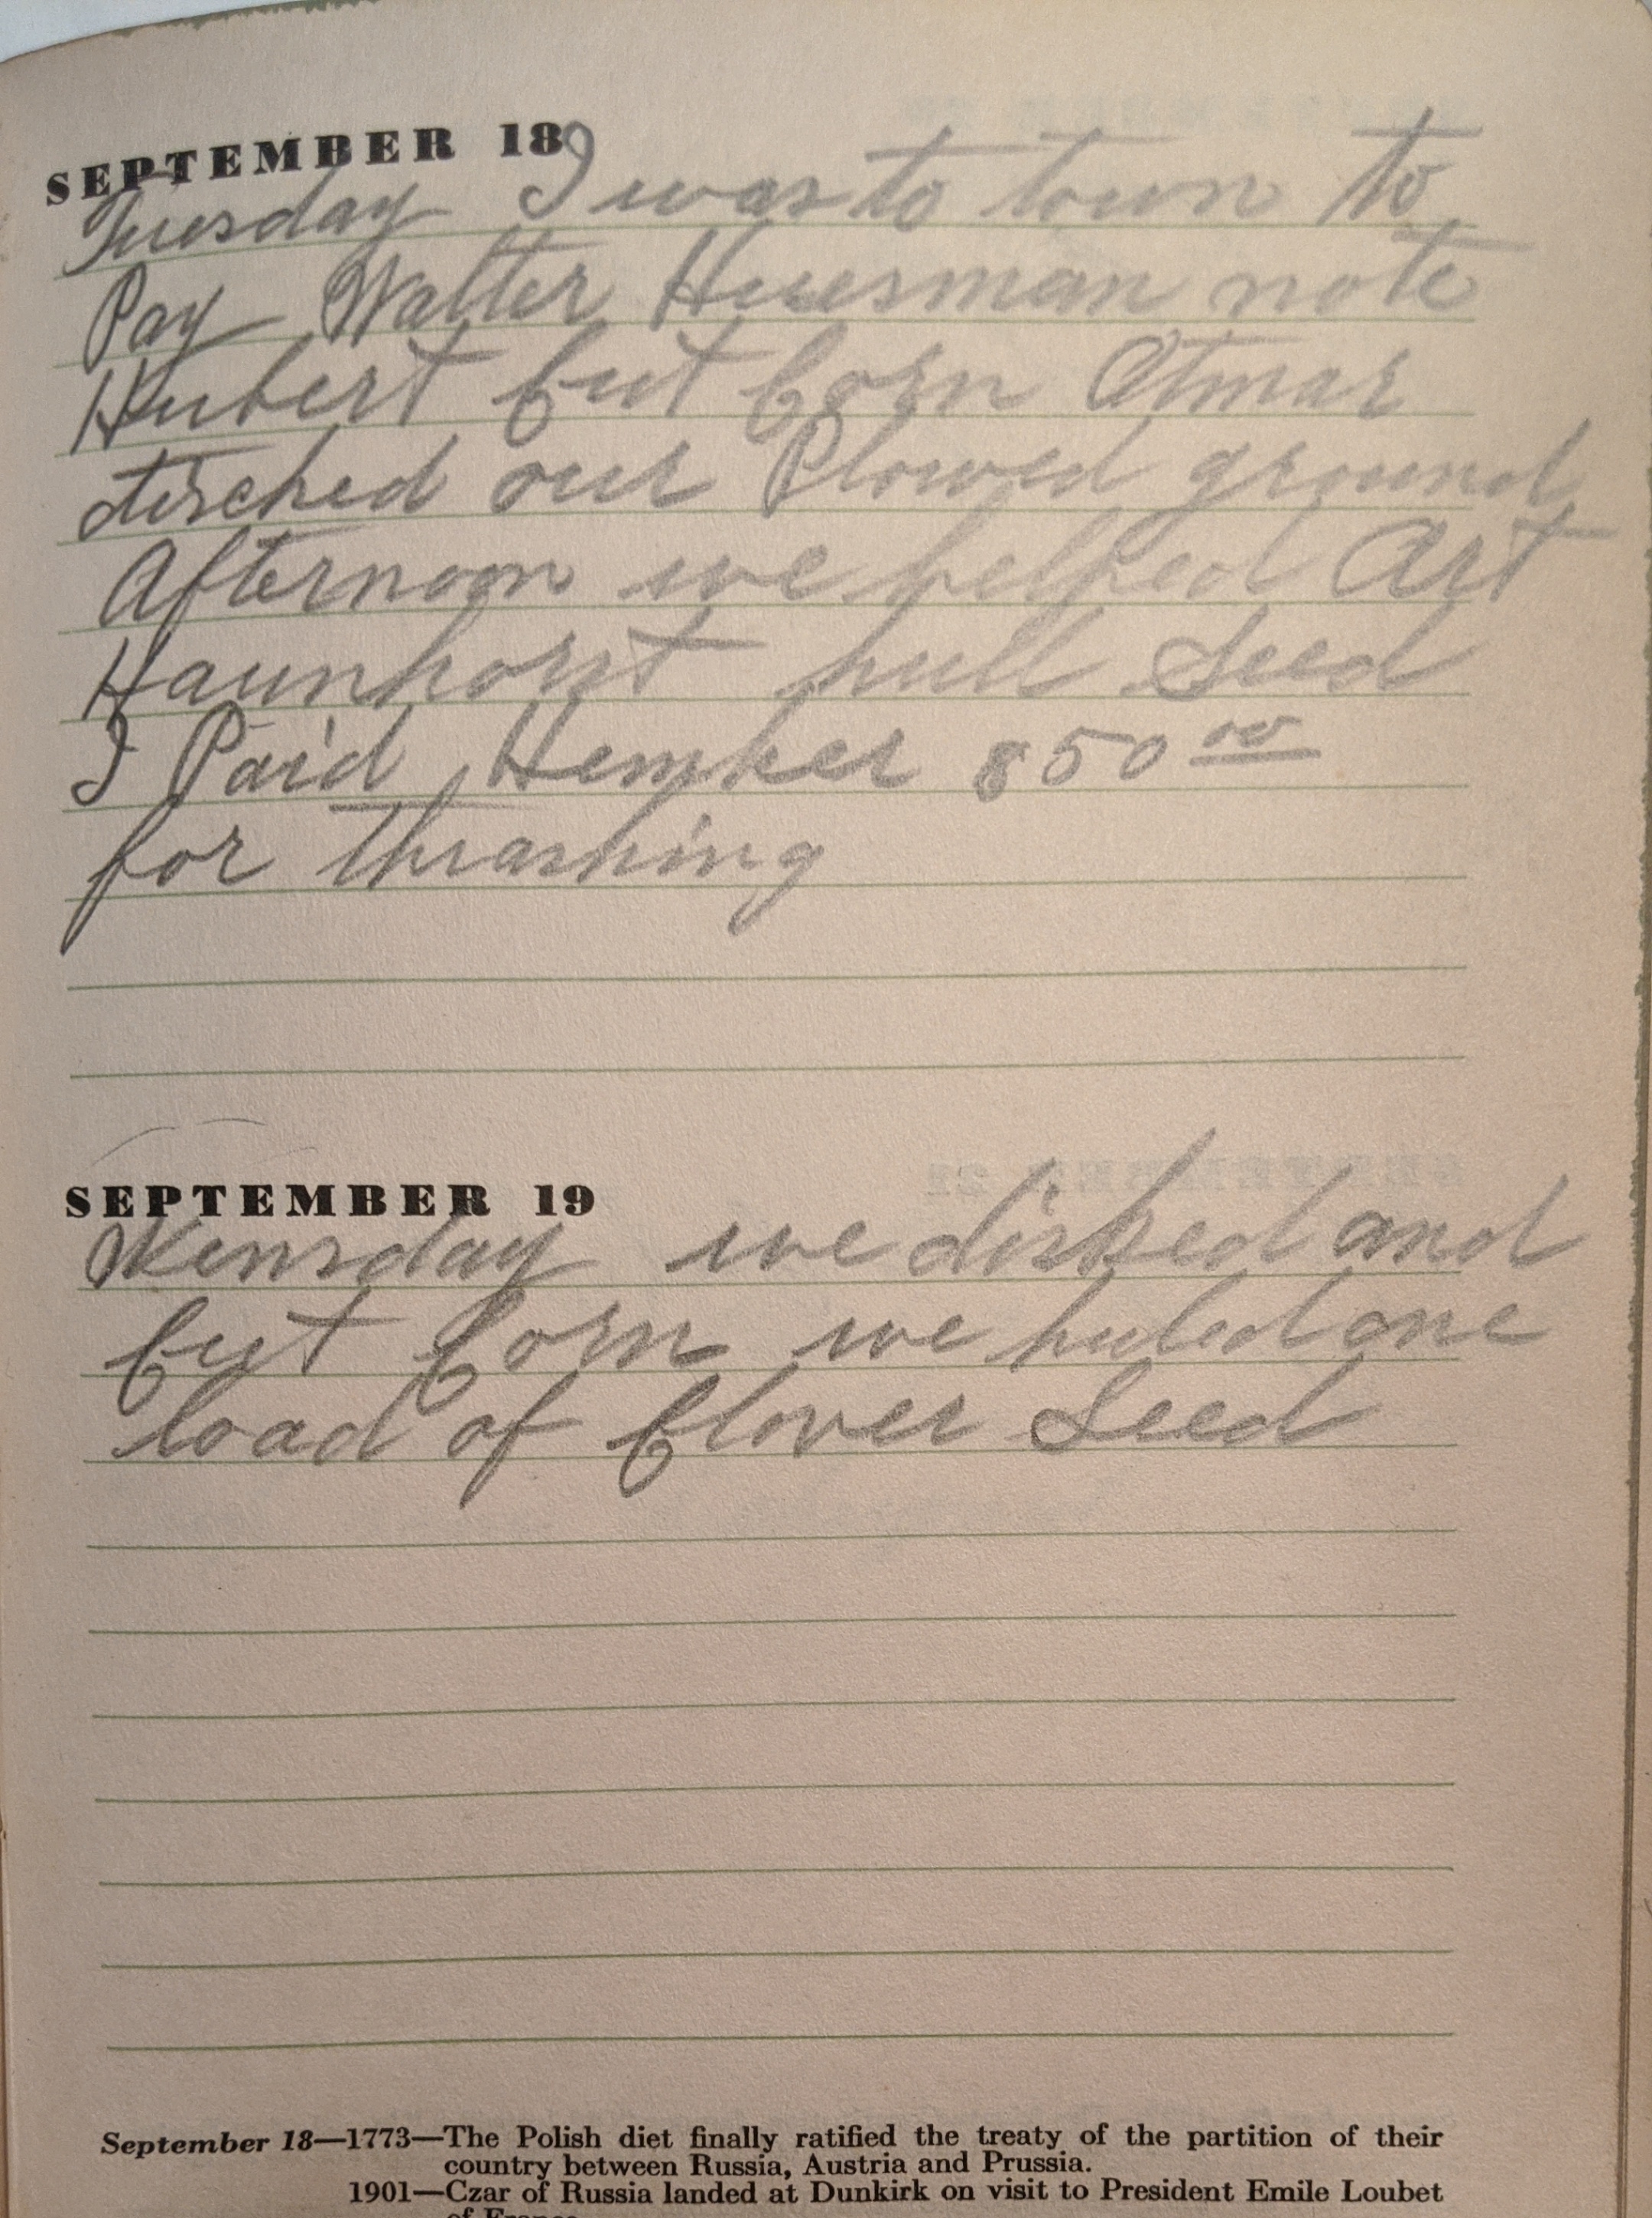 SEPTEMBER 18
Tuesday I was to town to
Pay Walter Huesman note
Hubert Cut Corn Otmar
disched our Plowed ground
Afternoon we helped Art
Haunhorst hull Seed
I Paid Hemker 850 00
for thrashing
SEPTEMBER 19
Wensday we disked and
Cut Corn we huled one
load of Clover Seed
September 18—1773—The Polish diet finally ratified the treaty of the partition of their
country between Russia, Austria and Prussia.
1901—Czar of Russia landed at Dunkirk on visit to President Emile Loubet
of France